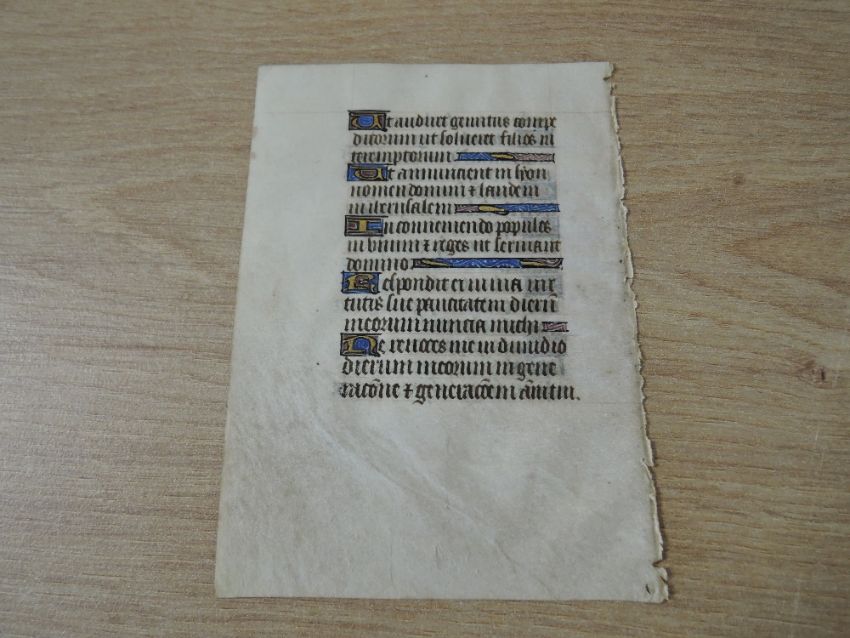 Ut audiret gemitus compe
ditorum ut solueret filios in
teremptorum
Ut annuncient in syon
nomen domini ⁊ laudem
in iherusalem
In conueniendo populos
in vnum ⁊ reges ut seruiant
domino
Respondit ei in uia uir
tutis sue paucitatem dierū
meorum nuncia michi
Ne reuoces me in dimidio
dierum meorum in gene
racōne ⁊ generacōem